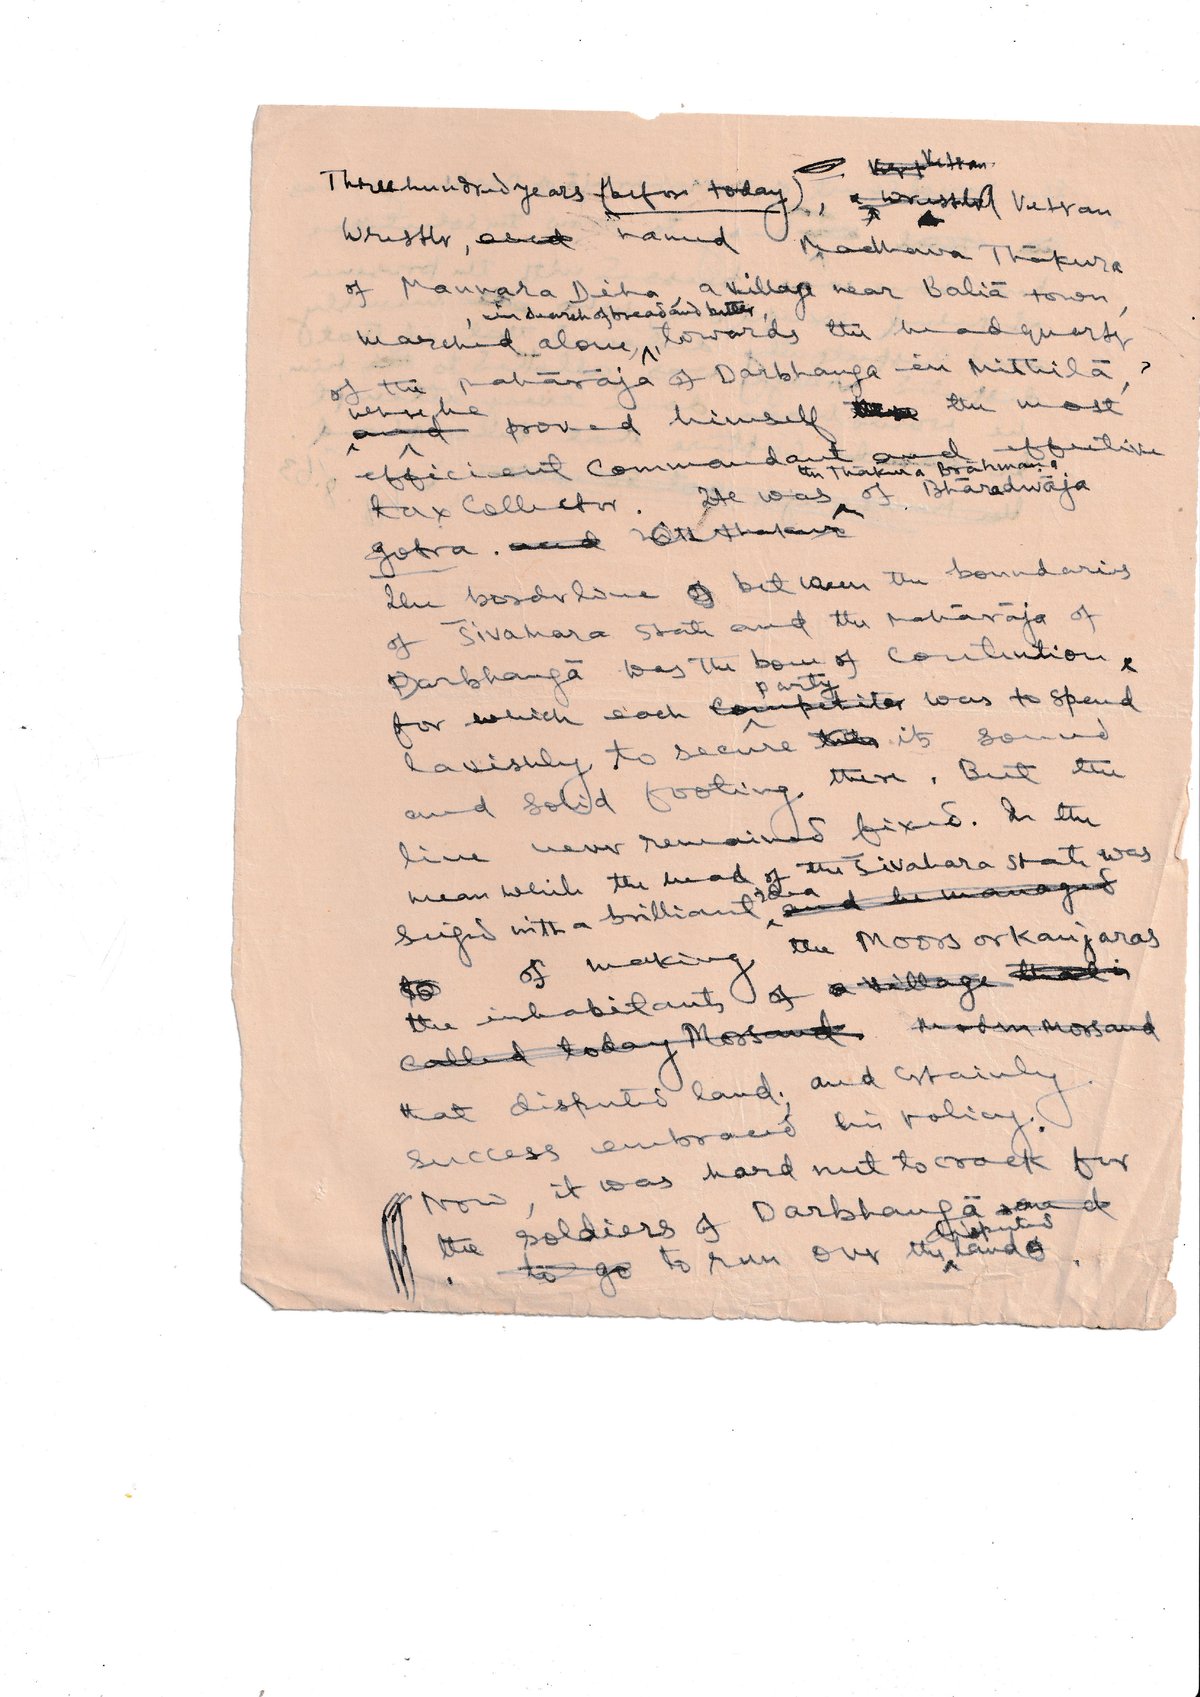 Three hundred years (before today), a wrestler Vetran
Wrestler, and named Madhava Thākura
of Mannara Diha a village near Baliā town,
in search of bread and butter,
marched alone, towards the head quarts
of the Mahārāja of Darbhanga in Mithilā,
where he
and proved himself the most
efficient Commandant and effective
the Thakura Brāhmana
tax Collector. He was of Bhāradwāja
gotra. and
The borderline between the boundaries
of Śivahara State and the Mahārāja of
Darbhangā was the bone of contention
party
for which each competitor was to spend
lavishly to secure its sound
and solid footing there. But the
line never remained fixed. In the
mean while the head of the Śivahara State was
idea
seized with a brilliant and he managed
to of making the Moors or Kanjaras
the inhabitants of a village that is
called today Morsand. modern Morsand
that disputed land, and certainly
success embraced his policy.
Now, it was hard nut to crack for
the soldiers of Darbhangā and
disputed
to go to run over the land.